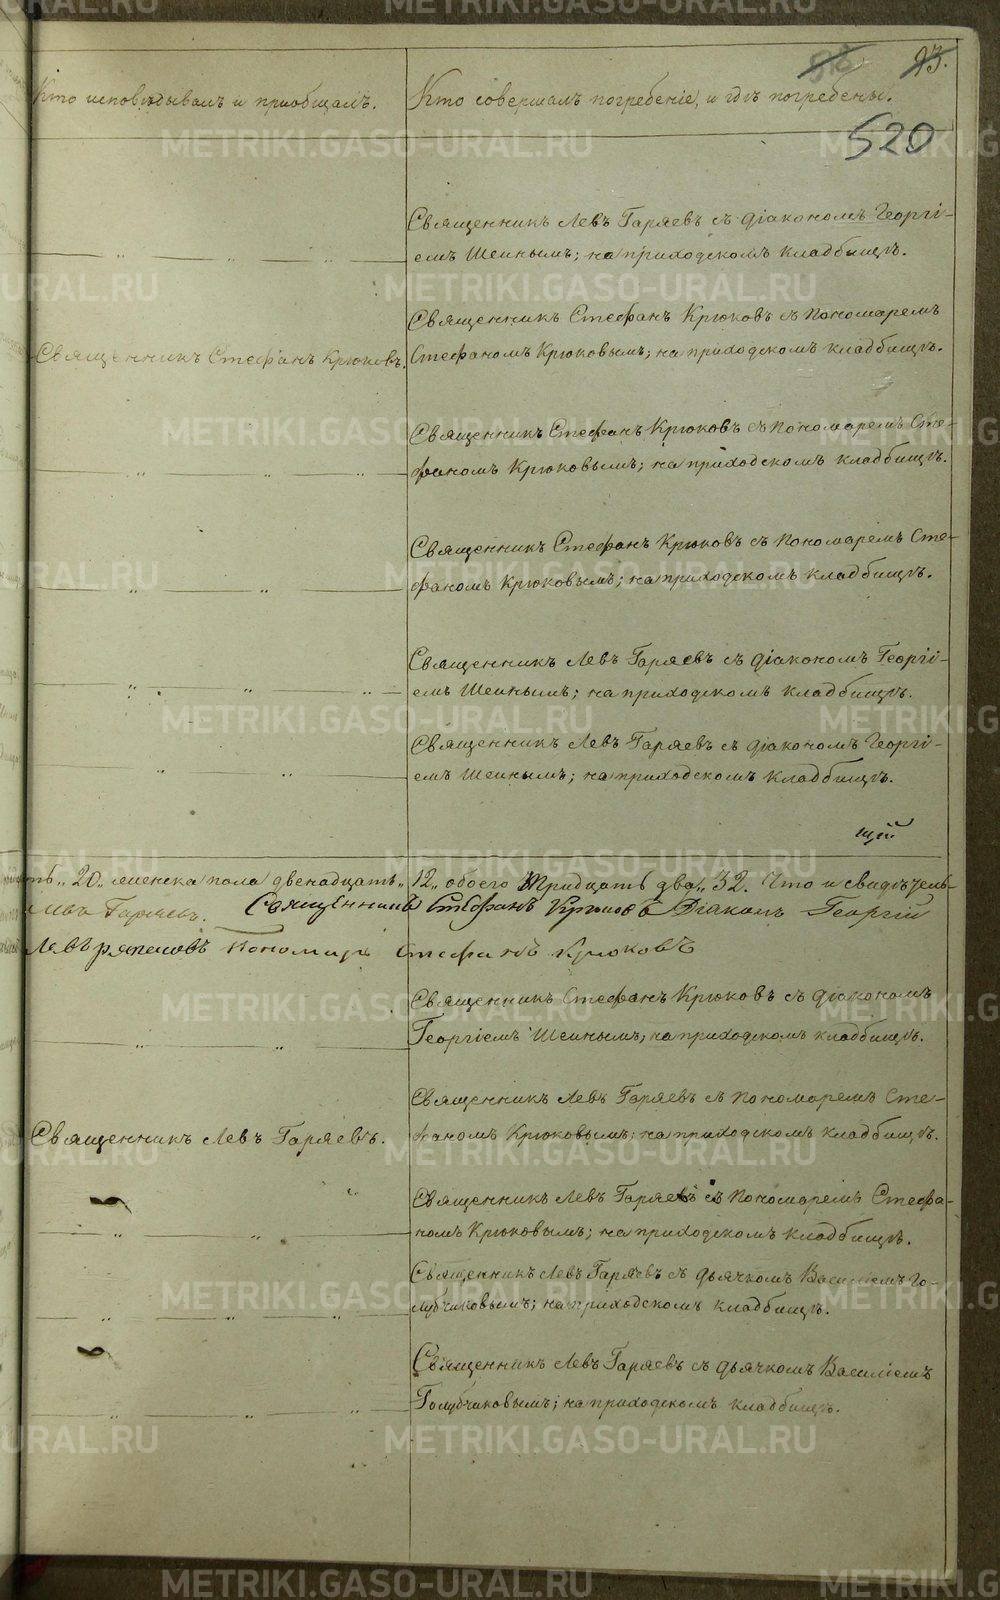 93.
520
Кто исповѣдывалъ и приобщалъ.
Кто совершалъ погребеніе, и гдѣ погребены.
Священникъ Левъ Гаряевъ съ Діакономъ Георгі-
емъ Шеинымъ; на приходскомъ кладбищѣ.
Священникъ Стефанъ Крюковъ.
Священникъ Стефанъ Крюковъ съ Пономаремъ
Стефаномъ Крюковымъ; на приходскомъ кладбищѣ.
Священникъ Стефанъ Крюковъ съ Пономаремъ Сте-
фаномъ Крюковымъ; на приходскомъ кладбищѣ.
Священникъ Стефанъ Крюковъ съ Пономаремъ Сте-
фаномъ Крюковымъ; на приходскомъ кладбищѣ.
Священникъ Левъ Гаряевъ съ Діакономъ Георгі-
емъ Шеинымъ; на приходскомъ кладбищѣ.
Священникъ Левъ Гаряевъ съ Діакономъ Георгі-
емъ Шеинымъ; на приходскомъ кладбищѣ.
щій
ть „20„ женска пола двенадцать „12„ обоего Тридцать два „32. Что и свидѣтель-
Левъ Гаряевъ. Священникъ Стефанъ Крюковъ Діаконъ Георгій
Пономарь Стефанъ Крюковъ
Священникъ Стефанъ Крюковъ съ Діакономъ
Георгіемъ Шеинымъ; на приходскомъ кладбищѣ.
Священникъ Левъ Гаряевъ.
Священникъ Левъ Гаряевъ съ Пономаремъ Сте-
фаномъ Крюковымъ; на приходскомъ кладбищѣ.
Священникъ Левъ Гаряевъ съ Пономаремъ Стефа-
номъ Крюковымъ; на приходскомъ кладбищѣ.
Священникъ Левъ Гаряевъ съ Дьячкомъ Василіемъ Го-
лубчиковымъ; на приходскомъ кладбищѣ.
Священникъ Левъ Гаряевъ съ Дьячкомъ Василіемъ
Голубчиковымъ; на приходскомъ кладбищѣ.
METRIKI.GASO-URAL.RU